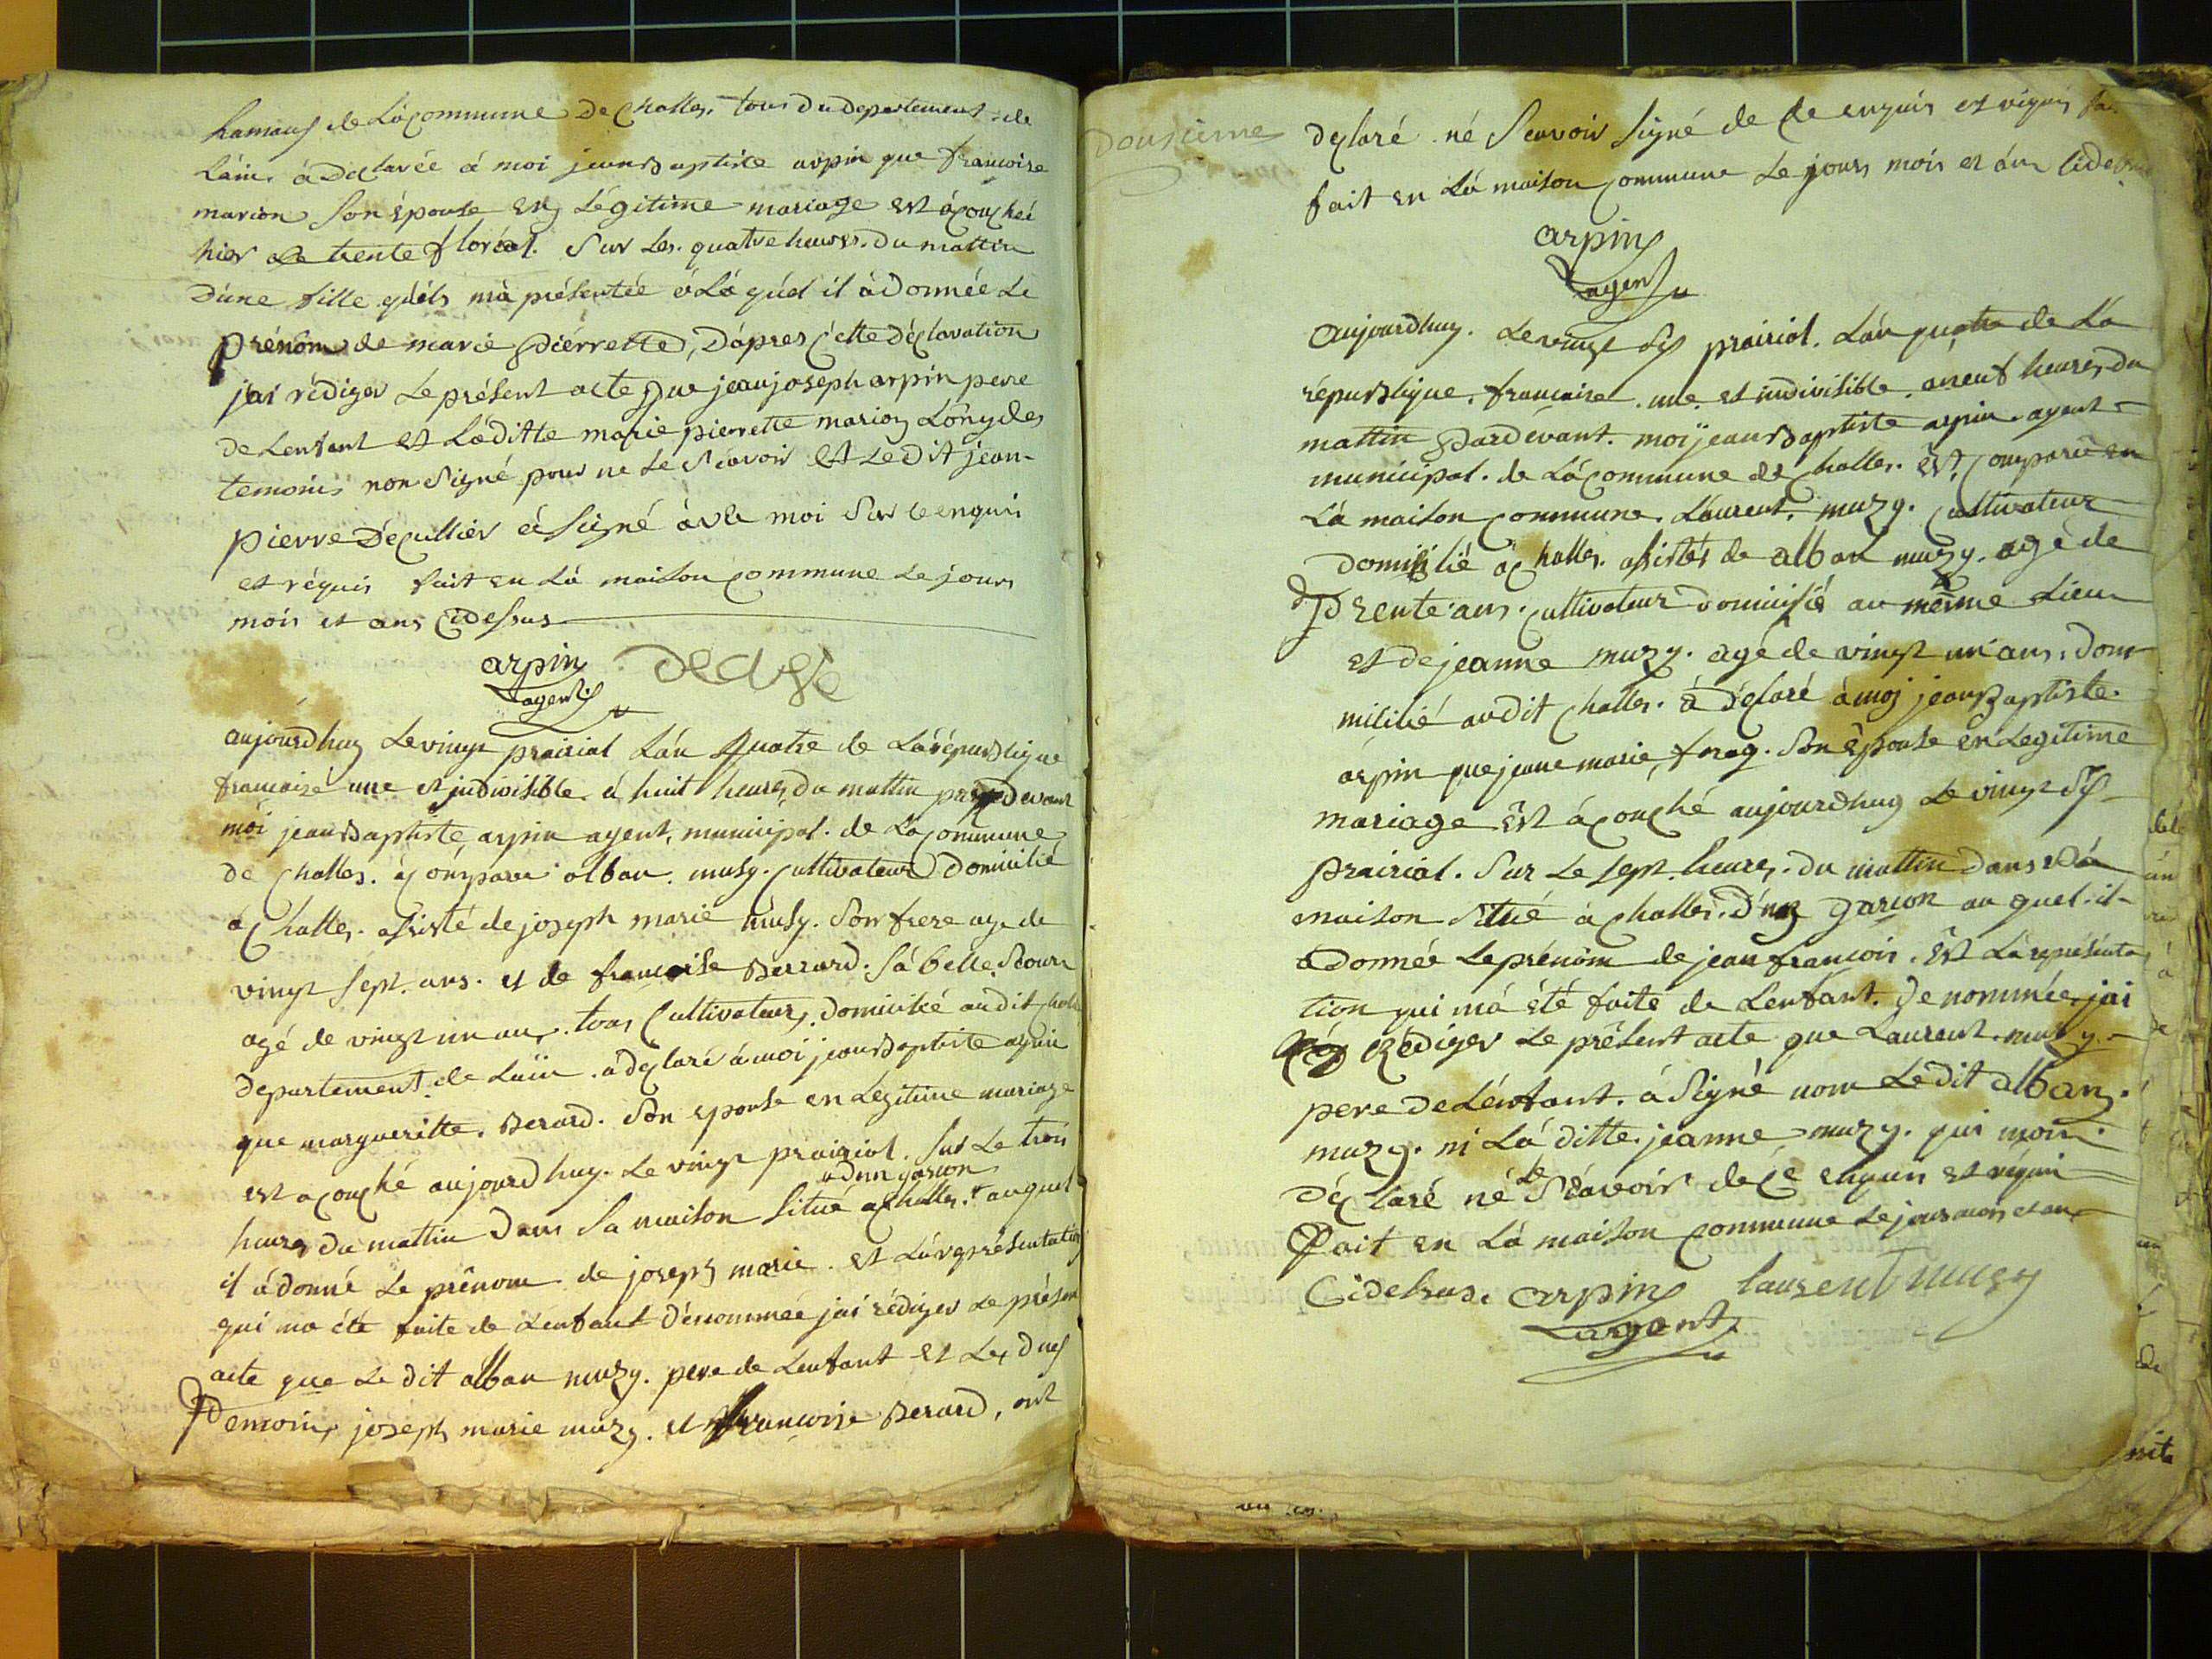 hamauf de Làcommune de Challes. tous du departement de
Láin. à declarée à moi jeanbaptiste arpin que francoise
marion Son épouse en Légitime mariage est àcouchéé
hier le trente floréal. Sur Les quatre heures du mattin
d'une fille qúéls mà présentéé à Là qúél il à donnée Le
prénom de marie pierrette, dápres cette déclaration
jai rédiger Le présent acte que jeanjoseph arpin pere
de Lenfant et Laditte marie pierrette marion Lún des
temoins non Signé pour ne Le Scavoir et Le dit jean-
pierre décullier à Signé avec moi Sur ce enquis
et réquis fait en Là maison commune Le jours
mois et ans cidessus
arpin
agent
aujourdhuy Levingt prairial Lán quatre de Làrépublique
francaise une et indivisible à huit heures du mattin pardevant
moi jeanbaptiste arpin agent municipal. de Là commune
de Challes. à cómparu alban. musy. cultivateur domicilié
à Challes. assisté de joseph marie musy. Son frere agé de
vingt sept ans. et de francoise Berrard. Sà belle Soeur
agé de vingt un ans. tous cultivateurs. domicilié audit
departement de Lain. à déclaré à moi jeanbaptiste arpin
que margueritte. Berard. Son epouse en Légitime mariage
est acouché aujourdhuy. Le vingt prairial. Sur Le trois
adun garcon
heures du mattin dans Sa maison Situé à Challes. auquel
il à donné Le prénom de joseph marie. et Làreprésentation
qui ma été faite de Lenfant dénommée jai rédiger Le présent
acte que Le dit alban muzy. pere de Lenfant et Les deus
temoins joseph marie muzy. et francoise Berard, ont
Dousieme
déclaré né Scavoir Signé de ce enquis et réquis
fait en Là maison commune Le jours mois et án
arpin
agent
aujourdhuy. Levingt Six prairial. Lán quatre de La
république. francaise. une et indivisible. àneuf heures du
mattin pardevant. moi jeanbaptiste arpin. agent
municipal. de Làcommune de Challes. est comparu en
Là maison commune. Laurent. muzy. cultivateur
domicilié à Challes. assistés de alban muzy. agé de
trente ans. cultivateur domicilié au même Lieu
et de jeanne muzy. agé de vingt un ans. dom
micilié audit Challes. à déclaré à moi jeanbaptiste
arpin que jeane marie. Son épouse en Legitime
mariage est àcouché aujourdhuy Le vingt Six
prairial. Sur Le sept heures. du mattin dans Sà
maison Situé à Challes. d'un garcon au quel il
à donnée Le prénom de jean francois. est Làreprésenta
tion qui mà été faite de Lenfant. denommée. jai
Rédiger Le présent acte que Laurent. muzy.
pere de Lénfant. à Signé nom Le dit alban.
muzy. ni Là ditte jeanne muzy. qui mon
déclaré né Le Scavoir de ce enquis et réquis
Fait en Là maison commune Le jours mois et an
Cidessus. arpin Laurent musy
agent